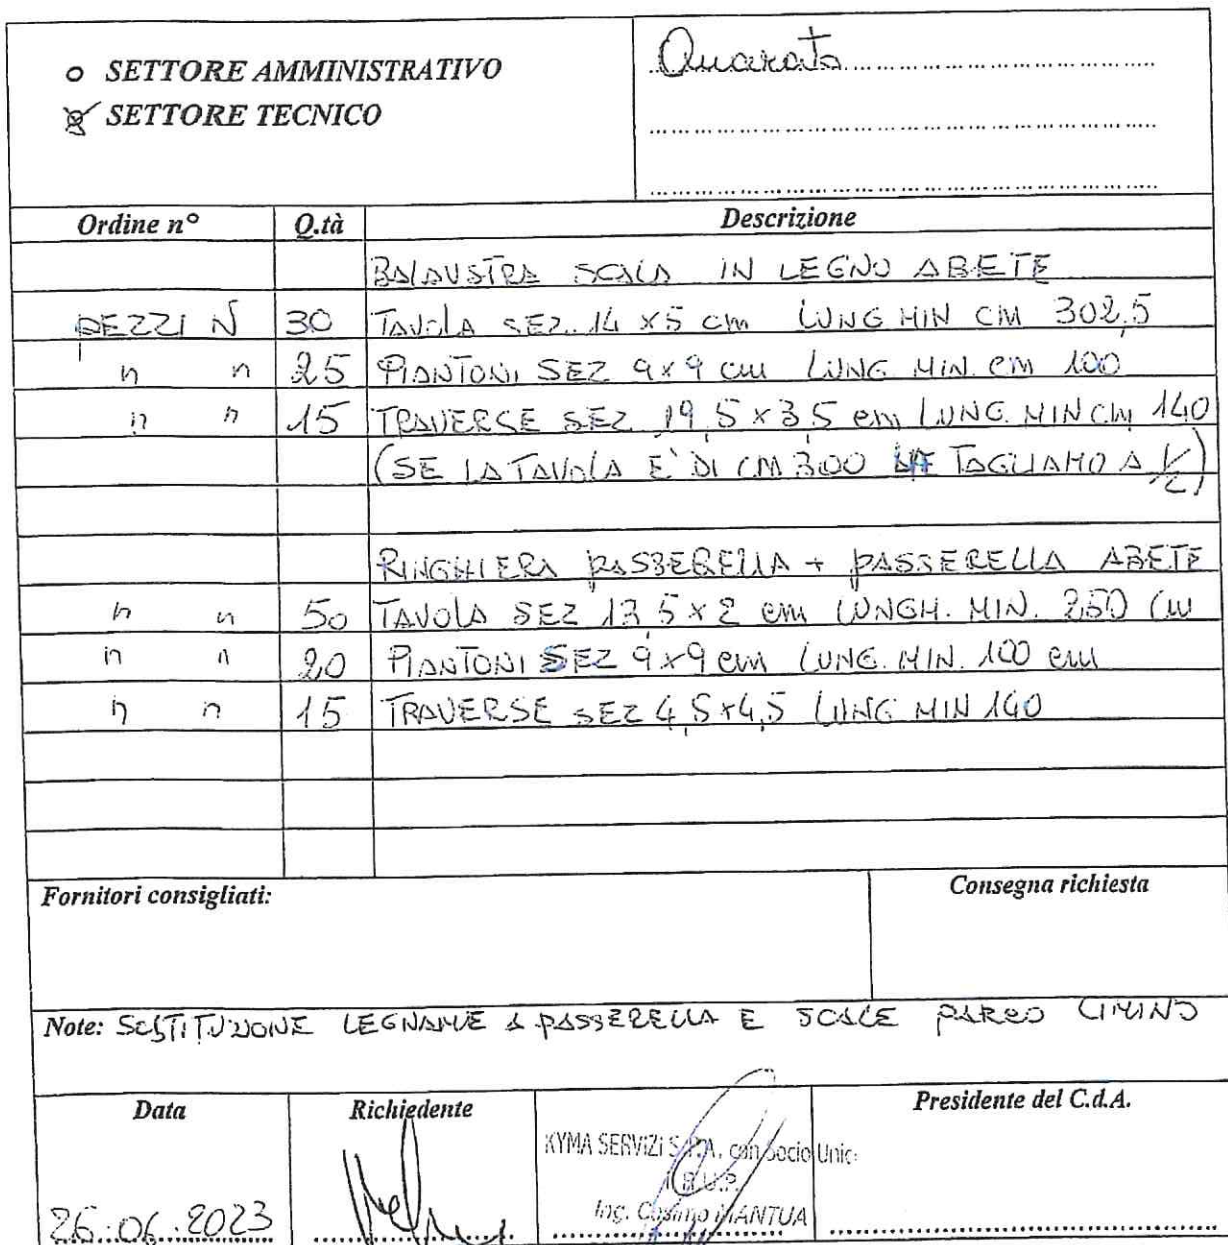 o SETTORE AMMINISTRATIVO
SETTORE TECNICO
Quarato
Ordine n° Q.tà Descrizione
BALAUSTRA SCALA IN LEGNO ABETE
PEZZI N 30 TAVOLA SEZ. 14 x 5 cm LUNG MIN CM 302,5
" " 25 PIANTONI SEZ 9x9 cm LUNG MIN. CM 100
" " 15 TRAVERSE SEZ 19,5 x 3,5 cm LUNG. MIN CM 140
(SE LA TAVOLA E' DI CM 300 LA TAGLIAMO A 1/2)
RINGHIERA PASSERELLA + PASSERELLA ABETE
" " 50 TAVOLA SEZ 13,5 x 2 cm LUNGH. MIN. 250 cm
" " 20 PIANTONI SEZ 9x9 cm LUNG. MIN. 100 cm
" " 15 TRAVERSE SEZ 4,5x4,5 LUNG MIN 140
Fornitori consigliati: Consegna richiesta
Note: SOSTITUZIONE LEGNAME A PASSERELLA E SCALE PARCO CIMINO
Data Richiedente Presidente del C.d.A.
KYMA SERVIZI S.P.A. con Socio Unic
R.U.P.
Ing. Cosimo MANTUA
26.06.2023